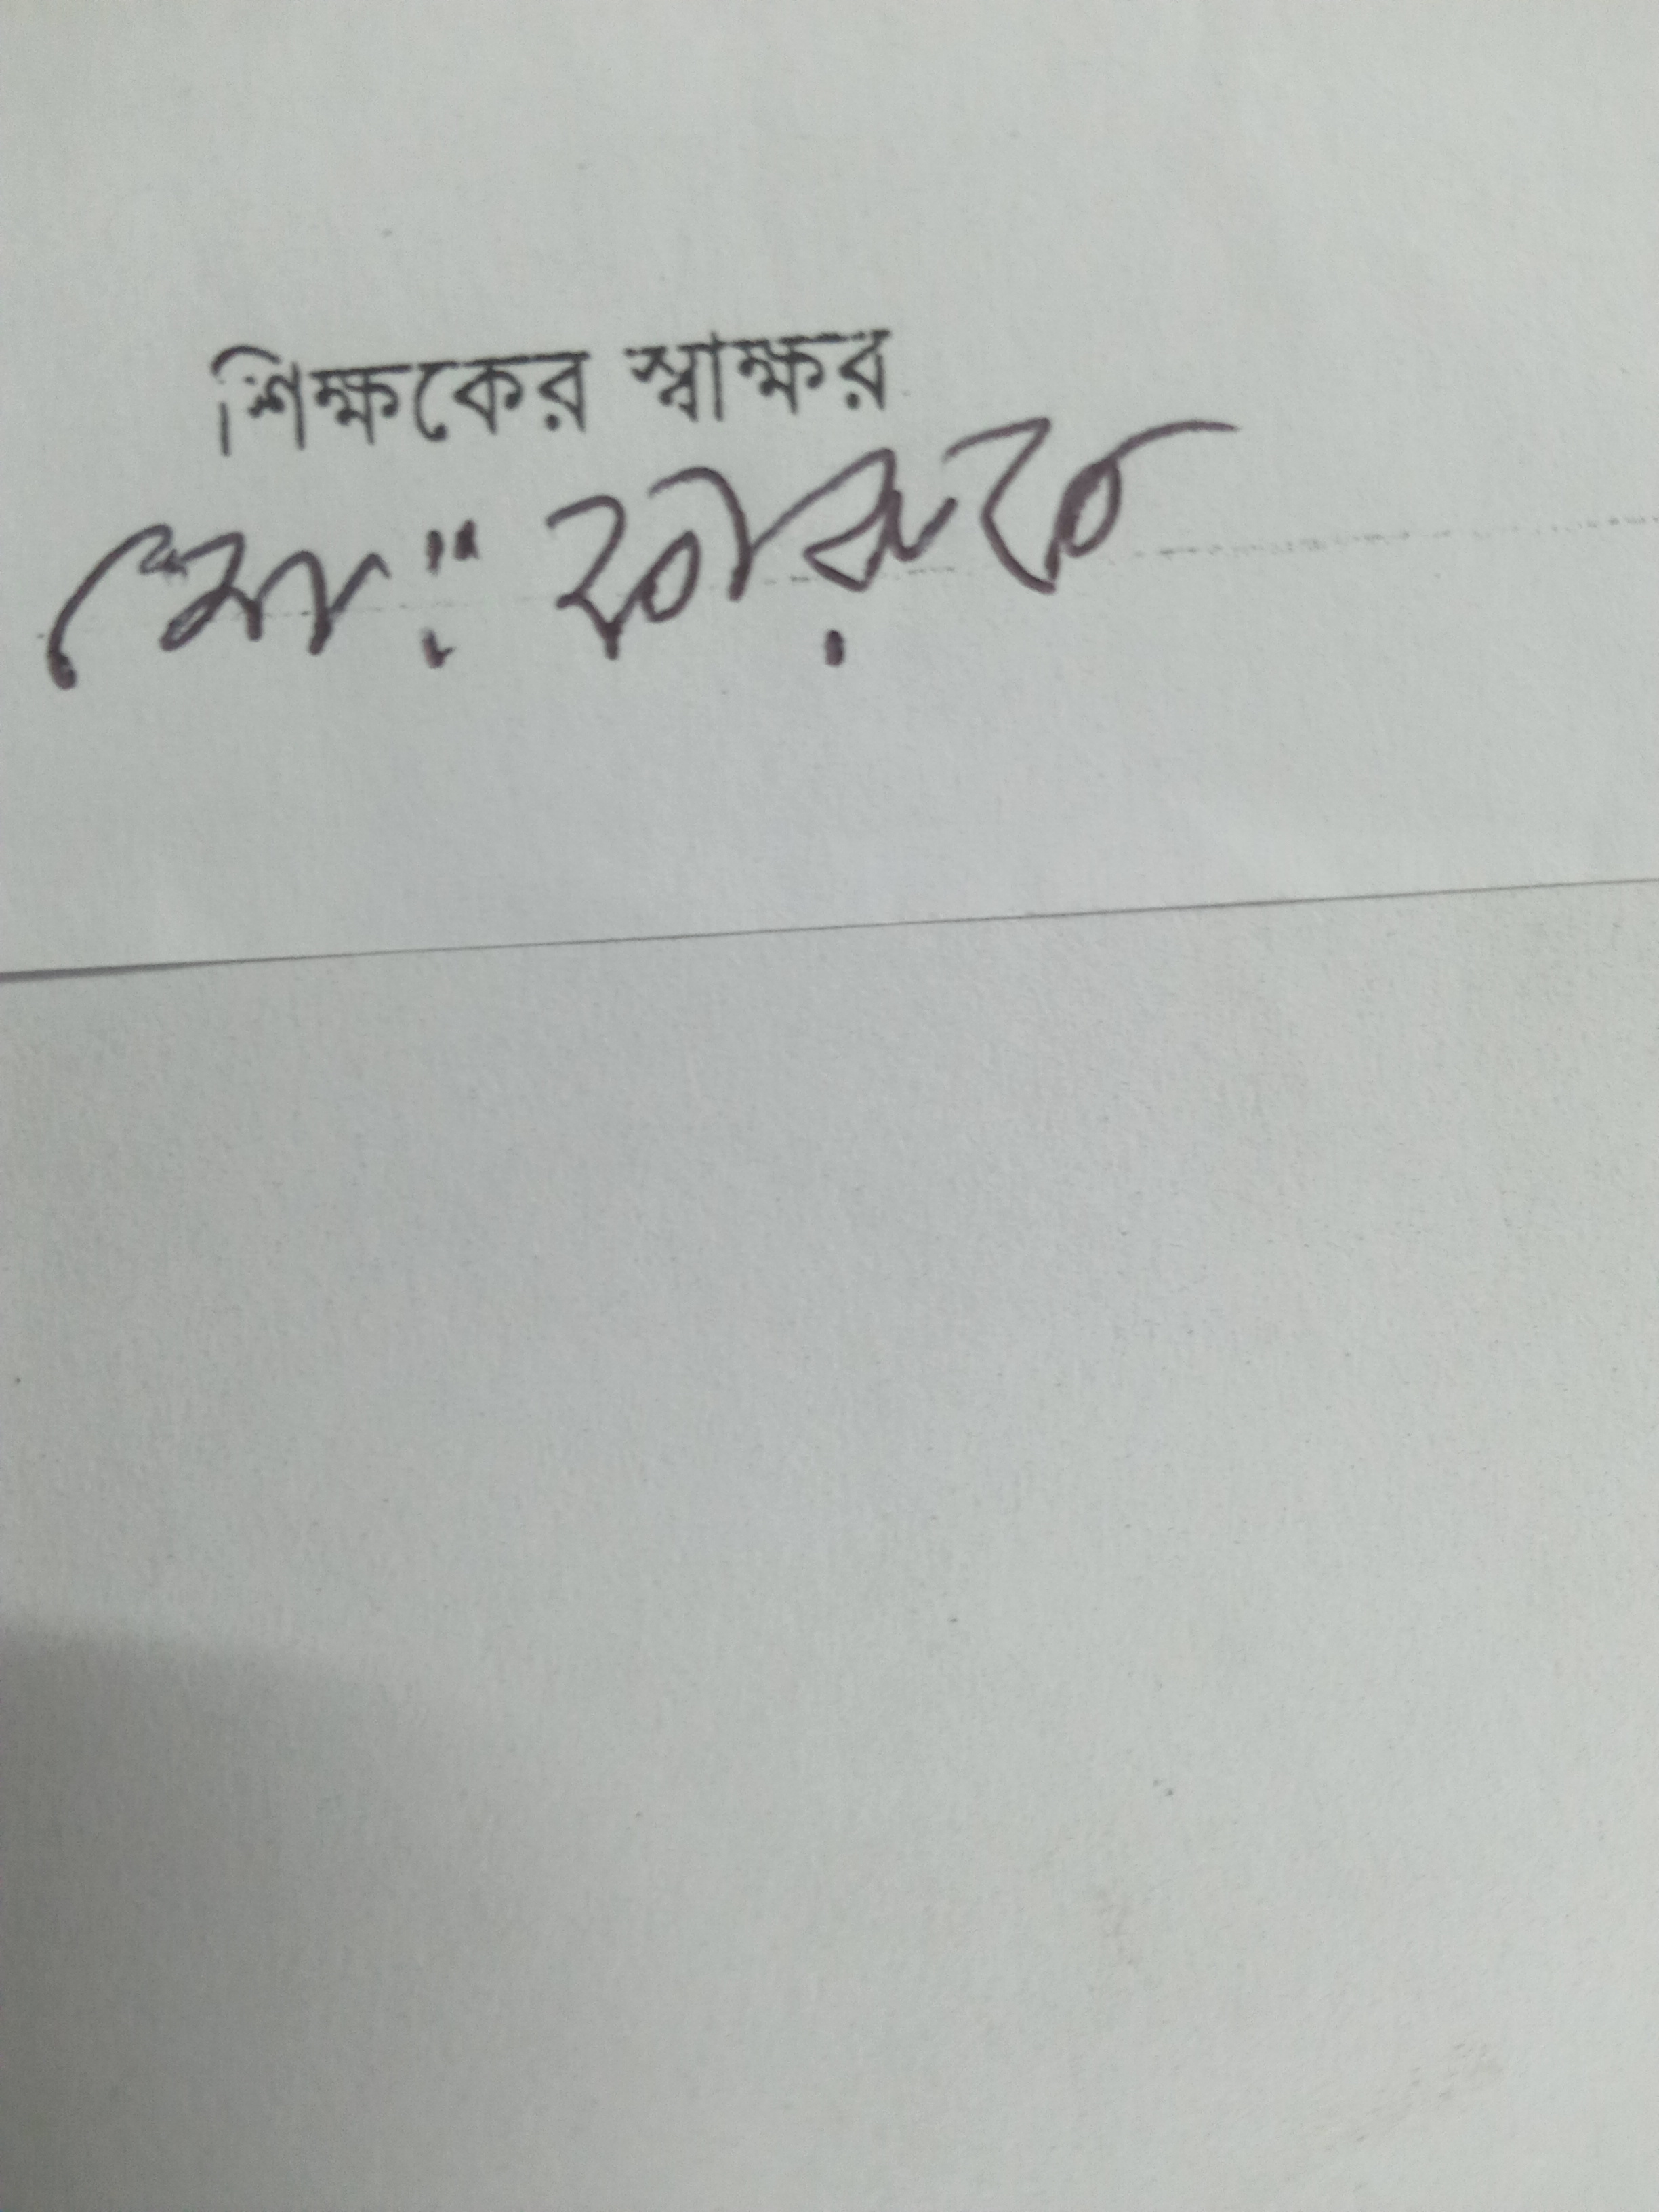 শিক্ষকের স্বাক্ষর
মোঃ ফারুক